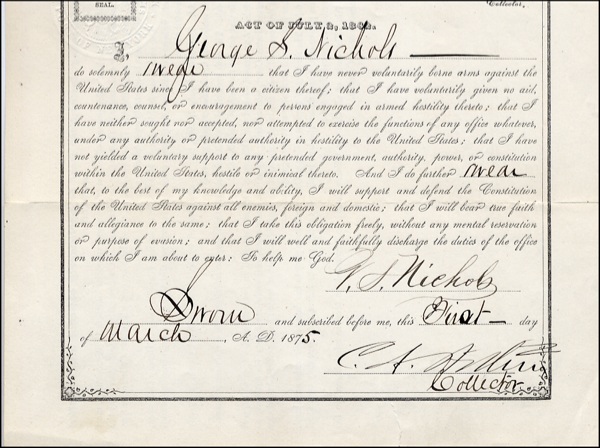 SEAL.
Collector.
ACT OF JULY 2, 1862.
I, George S. Nichols
do solemnly swear that I have never voluntarily borne arms against the
United States since I have been a citizen thereof; that I have voluntarily given no aid,
countenance, counsel, or encouragement to persons engaged in armed hostility thereto; that I
have neither sought nor accepted, nor attempted to exercise the functions of any office whatever,
under any authority or pretended authority in hostility to the United States; that I have
not yielded a voluntary support to any pretended government, authority, power, or constitution
within the United States, hostile or inimical thereto. And I do further swear
that, to the best of my knowledge and ability, I will support and defend the Constitution
of the United States against all enemies, foreign and domestic; that I will bear true faith
and allegiance to the same; that I take this obligation freely, without any mental reservation
or purpose of evasion; and that I will well and faithfully discharge the duties of the office
on which I am about to enter: So help me God.
G. S. Nichols
Sworn and subscribed before me, this First day
of March, A. D. 1875.
C. A.
Collector